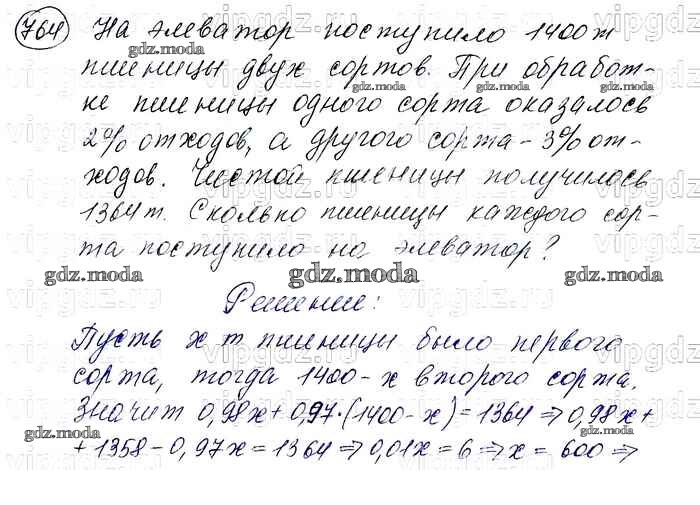 764 На элеватор поступило 1400т
пшеницы двух сортов. При обработ-
ке пшеницы одного сорта оказалось
2% отходов, а другого сорта - 3% от-
ходов. Чистой пшеницы получилось
1364т. Сколько пшеницы каждого сор-
та поступило на элеватор?
Решение:
Пусть x т пшеницы было первого
сорта, тогда 1400-x второго сорта.
Значит 0,98x+0,97·(1400-x)=1364⇒0,98x+
+1358-0,97x=1364⇒0,01x=6⇒x=600⇒
gdz.moda
vipgdz